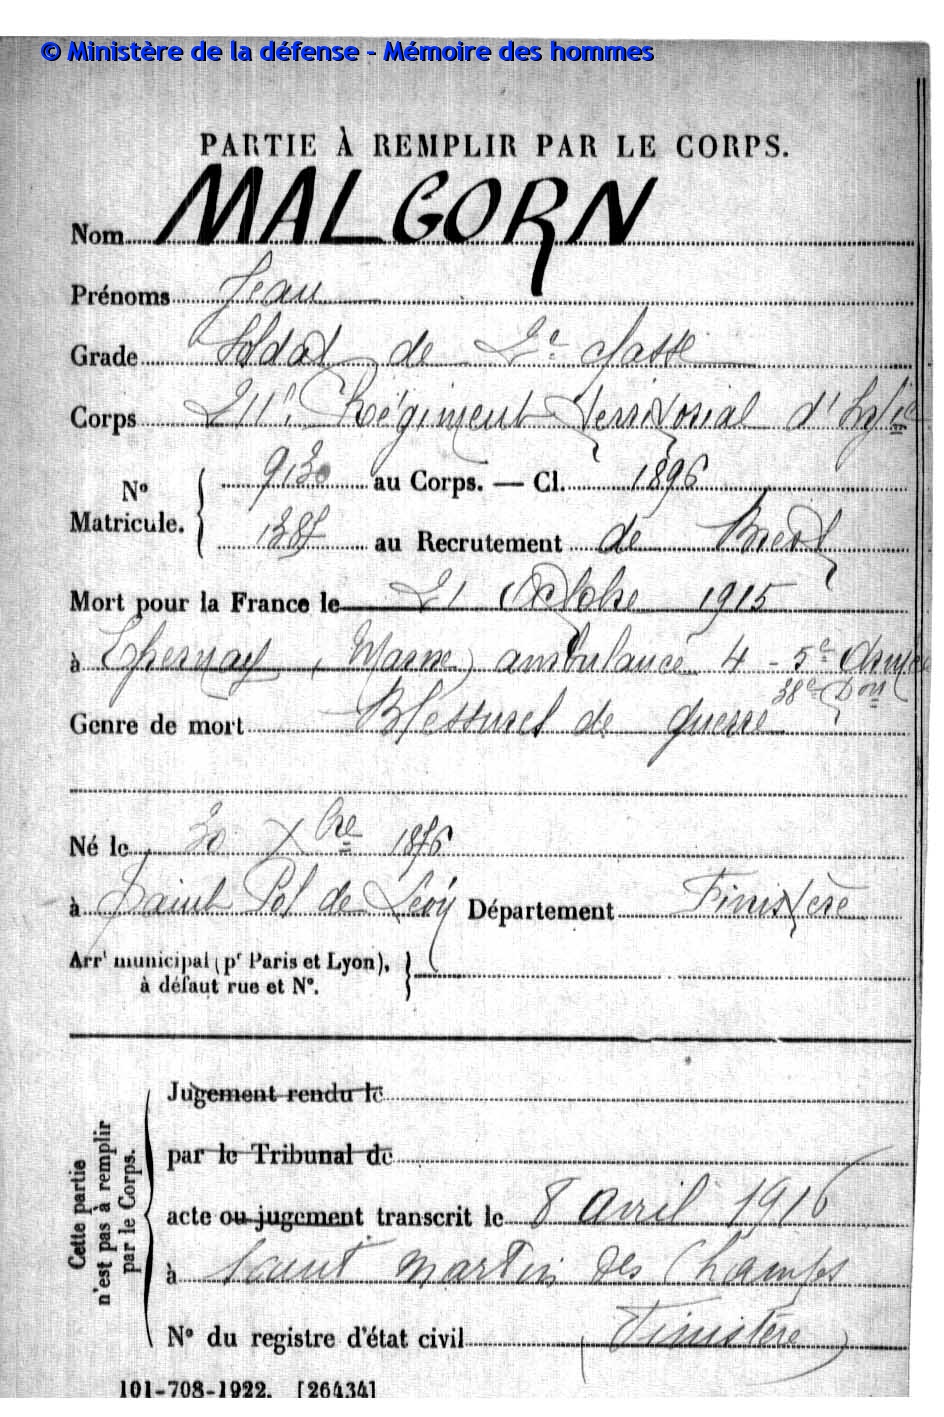 © Ministère de la défense - Mémoire des hommes
PARTIE À REMPLIR PAR LE CORPS.
Nom MALGORN
Prénoms Jean
Grade Soldat de 2e classe
Corps 211e Régiment Territorial d'Inf ie
N° Matricule. 9130 au Corps. — Cl. 1896
1387 au Recrutement de Brest
Mort pour la France le 21 Octobre 1915
à Epernay (Marne) ambulance 4 - 5e Armée
38e Don
Genre de mort Blessures de guerre
Né le 30 Xbre 1876
à Saint Pol de Léon Département Finistère
Arrt municipal (pr Paris et Lyon),
à défaut rue et N°.
Cette partie
n'est pas à remplir
par le Corps.
Jugement rendu le
par le Tribunal de
acte ou jugement transcrit le 8 Avril 1916
à Saint Martin des Champs
N° du registre d'état civil (Finistère)
101-708-1922. [26434]